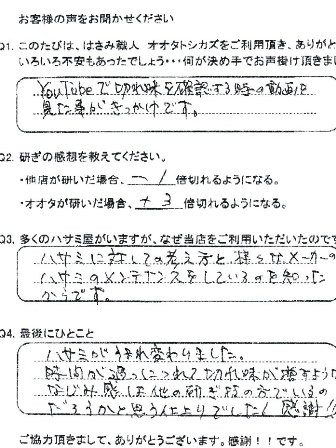 お客様の声をお聞かせください
Q1. このたびは、はさみ職人 オオタトシカズをご利用頂き、ありがと
いろいろ不安もあったでしょう・・・何が決め手でお声掛け頂きま
YouTubeで切れ味を確認する時の動画を
見た事がきっかけです。
Q2. 研ぎの感想を教えてください。
・他店が研いだ場合、 －1 倍切れるようになる。
・オオタが研いだ場合、 ＋3 倍切れるようになる。
Q3. 多くのハサミ屋がいますが、なぜ当店をご利用いただいたのです
ハサミに対しての考え方と様々なメーカーの
ハサミのメンテナンスをしているのを知った
からです。
Q4. 最後にひとこと
ハサミがうまれ変わりました。
時間が過っにつれて切れ味が増すような
なじみ感じは他の研ぎ技の方でいるの
だろうかと思う仕上りでした! 感謝
ご協力頂きまして、ありがとうございます。感謝！！です。